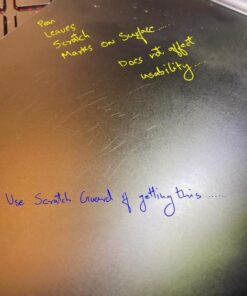 Pan
Leaves
Scratch
Marks on Surface.....
Does not affect
usability.....
Use Scratch Guard if getting this......